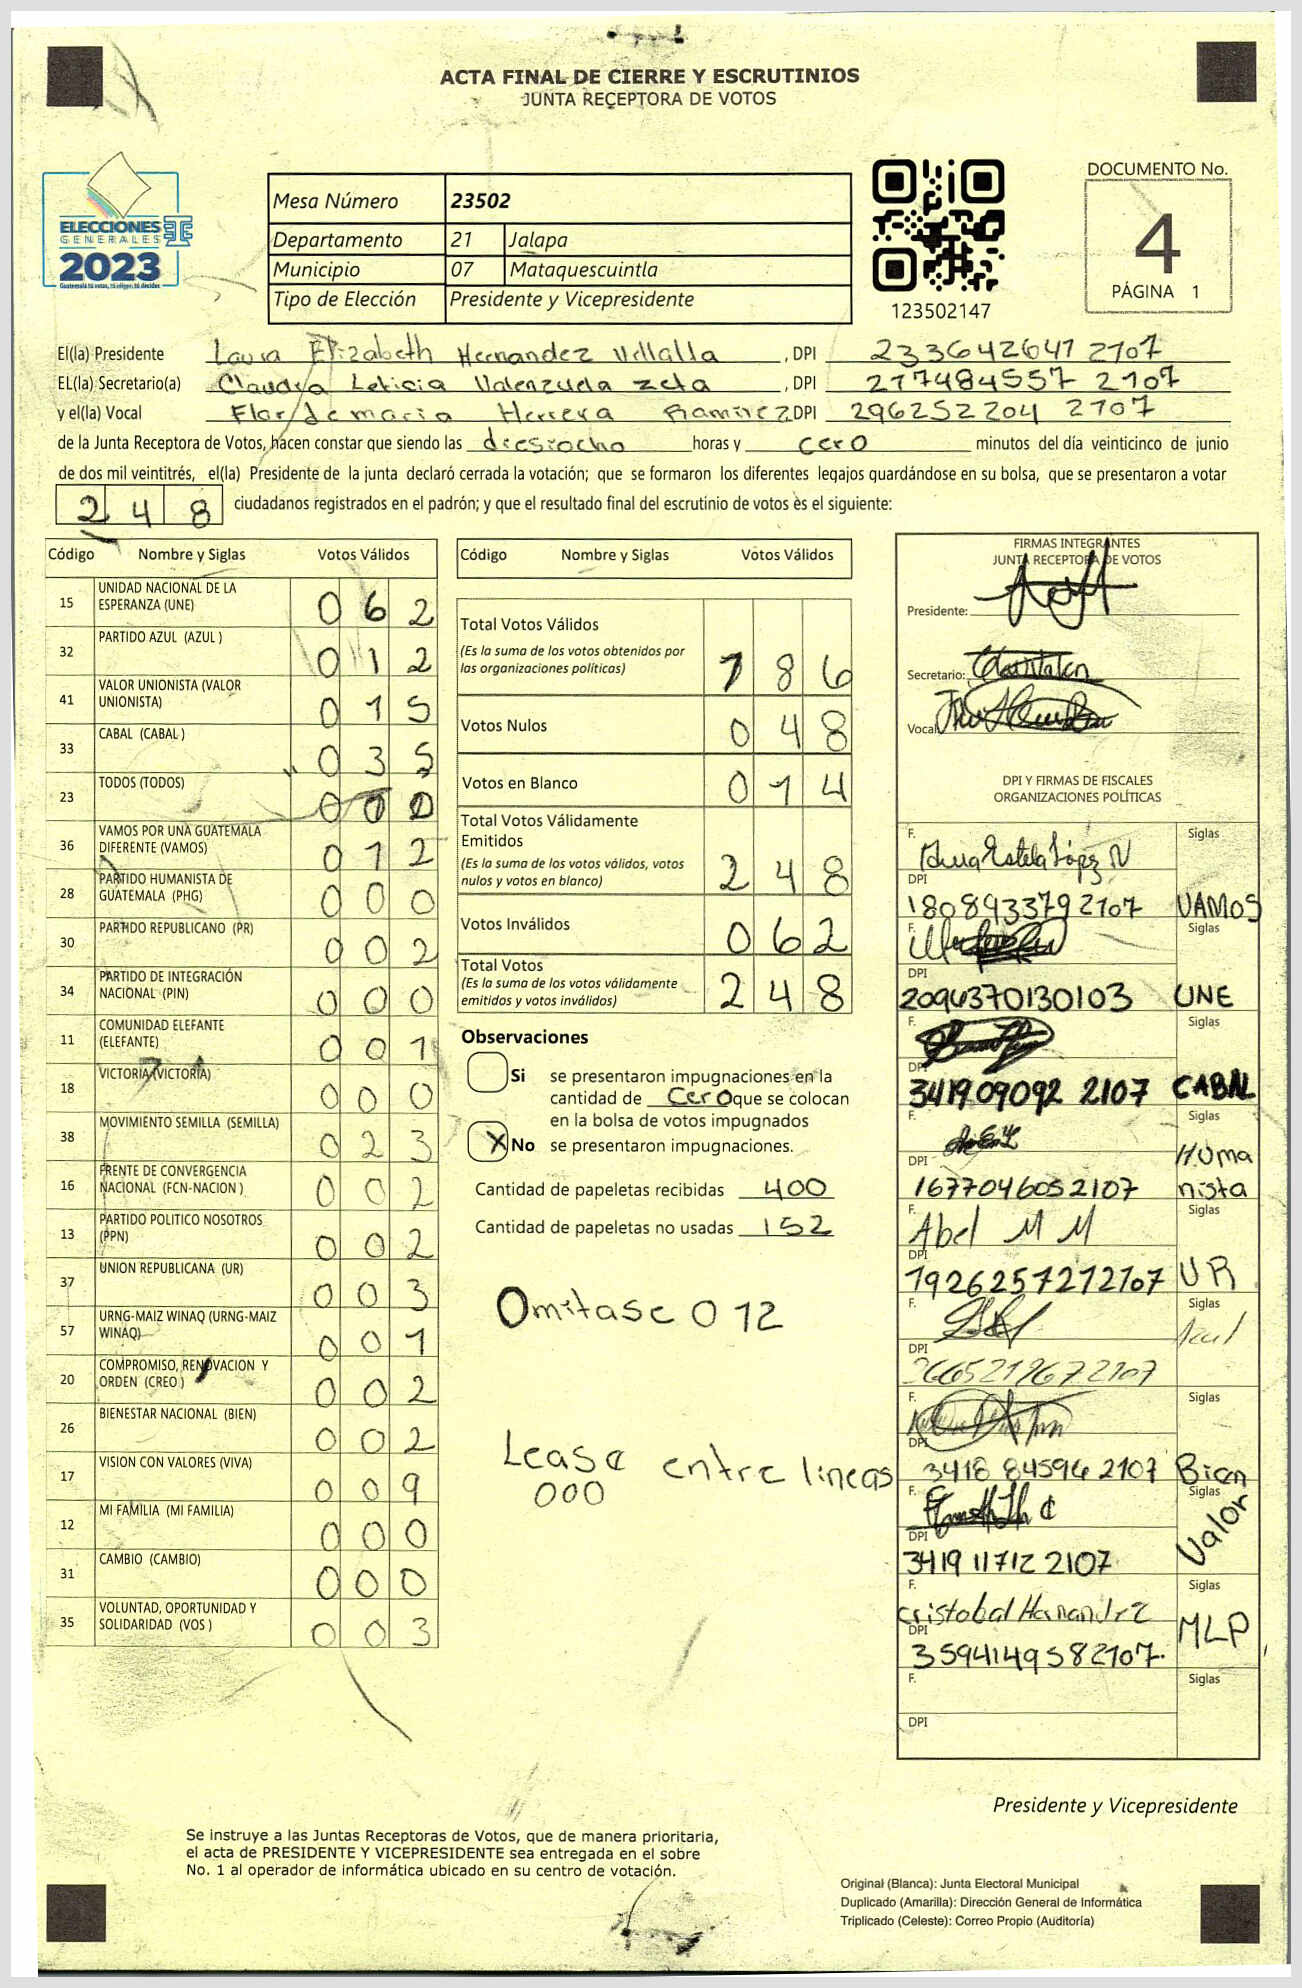 ACTA FINAL DE CIERRE Y ESCRUTINIOS
JUNTA RECEPTORA DE VOTOS
ELECCIONES
GENERALES
2023
Guatemala tú votas, tú eliges, tú decides
Mesa Número 23502
Departamento 21 Jalapa
Municipio 07 Mataquescuintla
Tipo de Elección Presidente y Vicepresidente
123502147
DOCUMENTO No.
4
PÁGINA 1
El(la) Presidente Laura Elizabeth Hernandez , DPI 233642641 2107
EL(la) Secretario(a) Claudia Leticia Valenzuela Zeta , DPI 217484557 2107
y el(la) Vocal Flor de maria Herrera Ramirez DPI 296252204 2107
de la Junta Receptora de Votos, hacen constar que siendo las diesiocho horas y cero minutos del día veinticinco de junio
de dos mil veintitrés, el(la) Presidente de la junta declaró cerrada la votación; que se formaron los diferentes legajos guardándose en su bolsa, que se presentaron a votar
248 ciudadanos registrados en el padrón; y que el resultado final del escrutinio de votos es el siguiente:
Código Nombre y Siglas Votos Válidos
15 UNIDAD NACIONAL DE LA ESPERANZA (UNE) 062
32 PARTIDO AZUL (AZUL ) 012
41 VALOR UNIONISTA (VALOR UNIONISTA) 015
33 CABAL (CABAL ) 035
23 TODOS (TODOS) 000
36 VAMOS POR UNA GUATEMALA DIFERENTE (VAMOS) 012
28 PARTIDO HUMANISTA DE GUATEMALA (PHG) 000
30 PARTIDO REPUBLICANO (PR) 002
34 PARTIDO DE INTEGRACIÓN NACIONAL (PIN) 000
11 COMUNIDAD ELEFANTE (ELEFANTE) 001
18 VICTORIA (VICTORIA) 000
38 MOVIMIENTO SEMILLA (SEMILLA) 023
16 FRENTE DE CONVERGENCIA NACIONAL (FCN-NACION ) 002
13 PARTIDO POLITICO NOSOTROS (PPN) 002
37 UNION REPUBLICANA (UR) 003
57 URNG-MAIZ WINAQ (URNG-MAIZ WINAQ) 001
20 COMPROMISO, RENOVACION Y ORDEN (CREO ) 002
26 BIENESTAR NACIONAL (BIEN) 002
17 VISION CON VALORES (VIVA) 009
12 MI FAMILIA (MI FAMILIA) 000
31 CAMBIO (CAMBIO) 000
35 VOLUNTAD, OPORTUNIDAD Y SOLIDARIDAD (VOS ) 003
Código Nombre y Siglas Votos Válidos
Total Votos Válidos
(Es la suma de los votos obtenidos por
las organizaciones políticas) 186
Votos Nulos 048
Votos en Blanco 014
Total Votos Válidamente
Emitidos
(Es la suma de los votos válidos, votos
nulos y votos en blanco) 248
Votos Inválidos 062
Total Votos
(Es la suma de los votos válidamente
emitidos y votos inválidos) 248
Observaciones
Si se presentaron impugnaciones en la
cantidad de cero que se colocan
en la bolsa de votos impugnados
X No se presentaron impugnaciones.
Cantidad de papeletas recibidas 400
Cantidad de papeletas no usadas 152
Omitase 012
Lease entre lineas
000
FIRMAS INTEGRANTES
JUNTA RECEPTORA DE VOTOS
Presidente:
Secretario:
Vocal:
DPI Y FIRMAS DE FISCALES
ORGANIZACIONES POLÍTICAS
F. Siglas
DPI
1808933792107 VAMOS
F. Siglas
DPI
2096370130103 UNE
F. Siglas
DPI
341909092 2107 CABAL
F. Siglas
DPI Huma
1677046052107 nista
F. Abel M M Siglas
DPI
1926257212107 UR
F. Siglas
Azul
DPI
2665219672107
F. Siglas
DPI
3418 84596 2107 Bien
F. Siglas
DPI Valor
3419 11712 2107
F. Siglas
Cristobal Hernandez
DPI MLP
3594149582107
F. Siglas
DPI
Presidente y Vicepresidente
Se instruye a las Juntas Receptoras de Votos, que de manera prioritaria,
el acta de PRESIDENTE Y VICEPRESIDENTE sea entregada en el sobre
No. 1 al operador de informática ubicado en su centro de votación.
Original (Blanca): Junta Electoral Municipal
Duplicado (Amarilla): Dirección General de Informática
Triplicado (Celeste): Correo Propio (Auditoría)